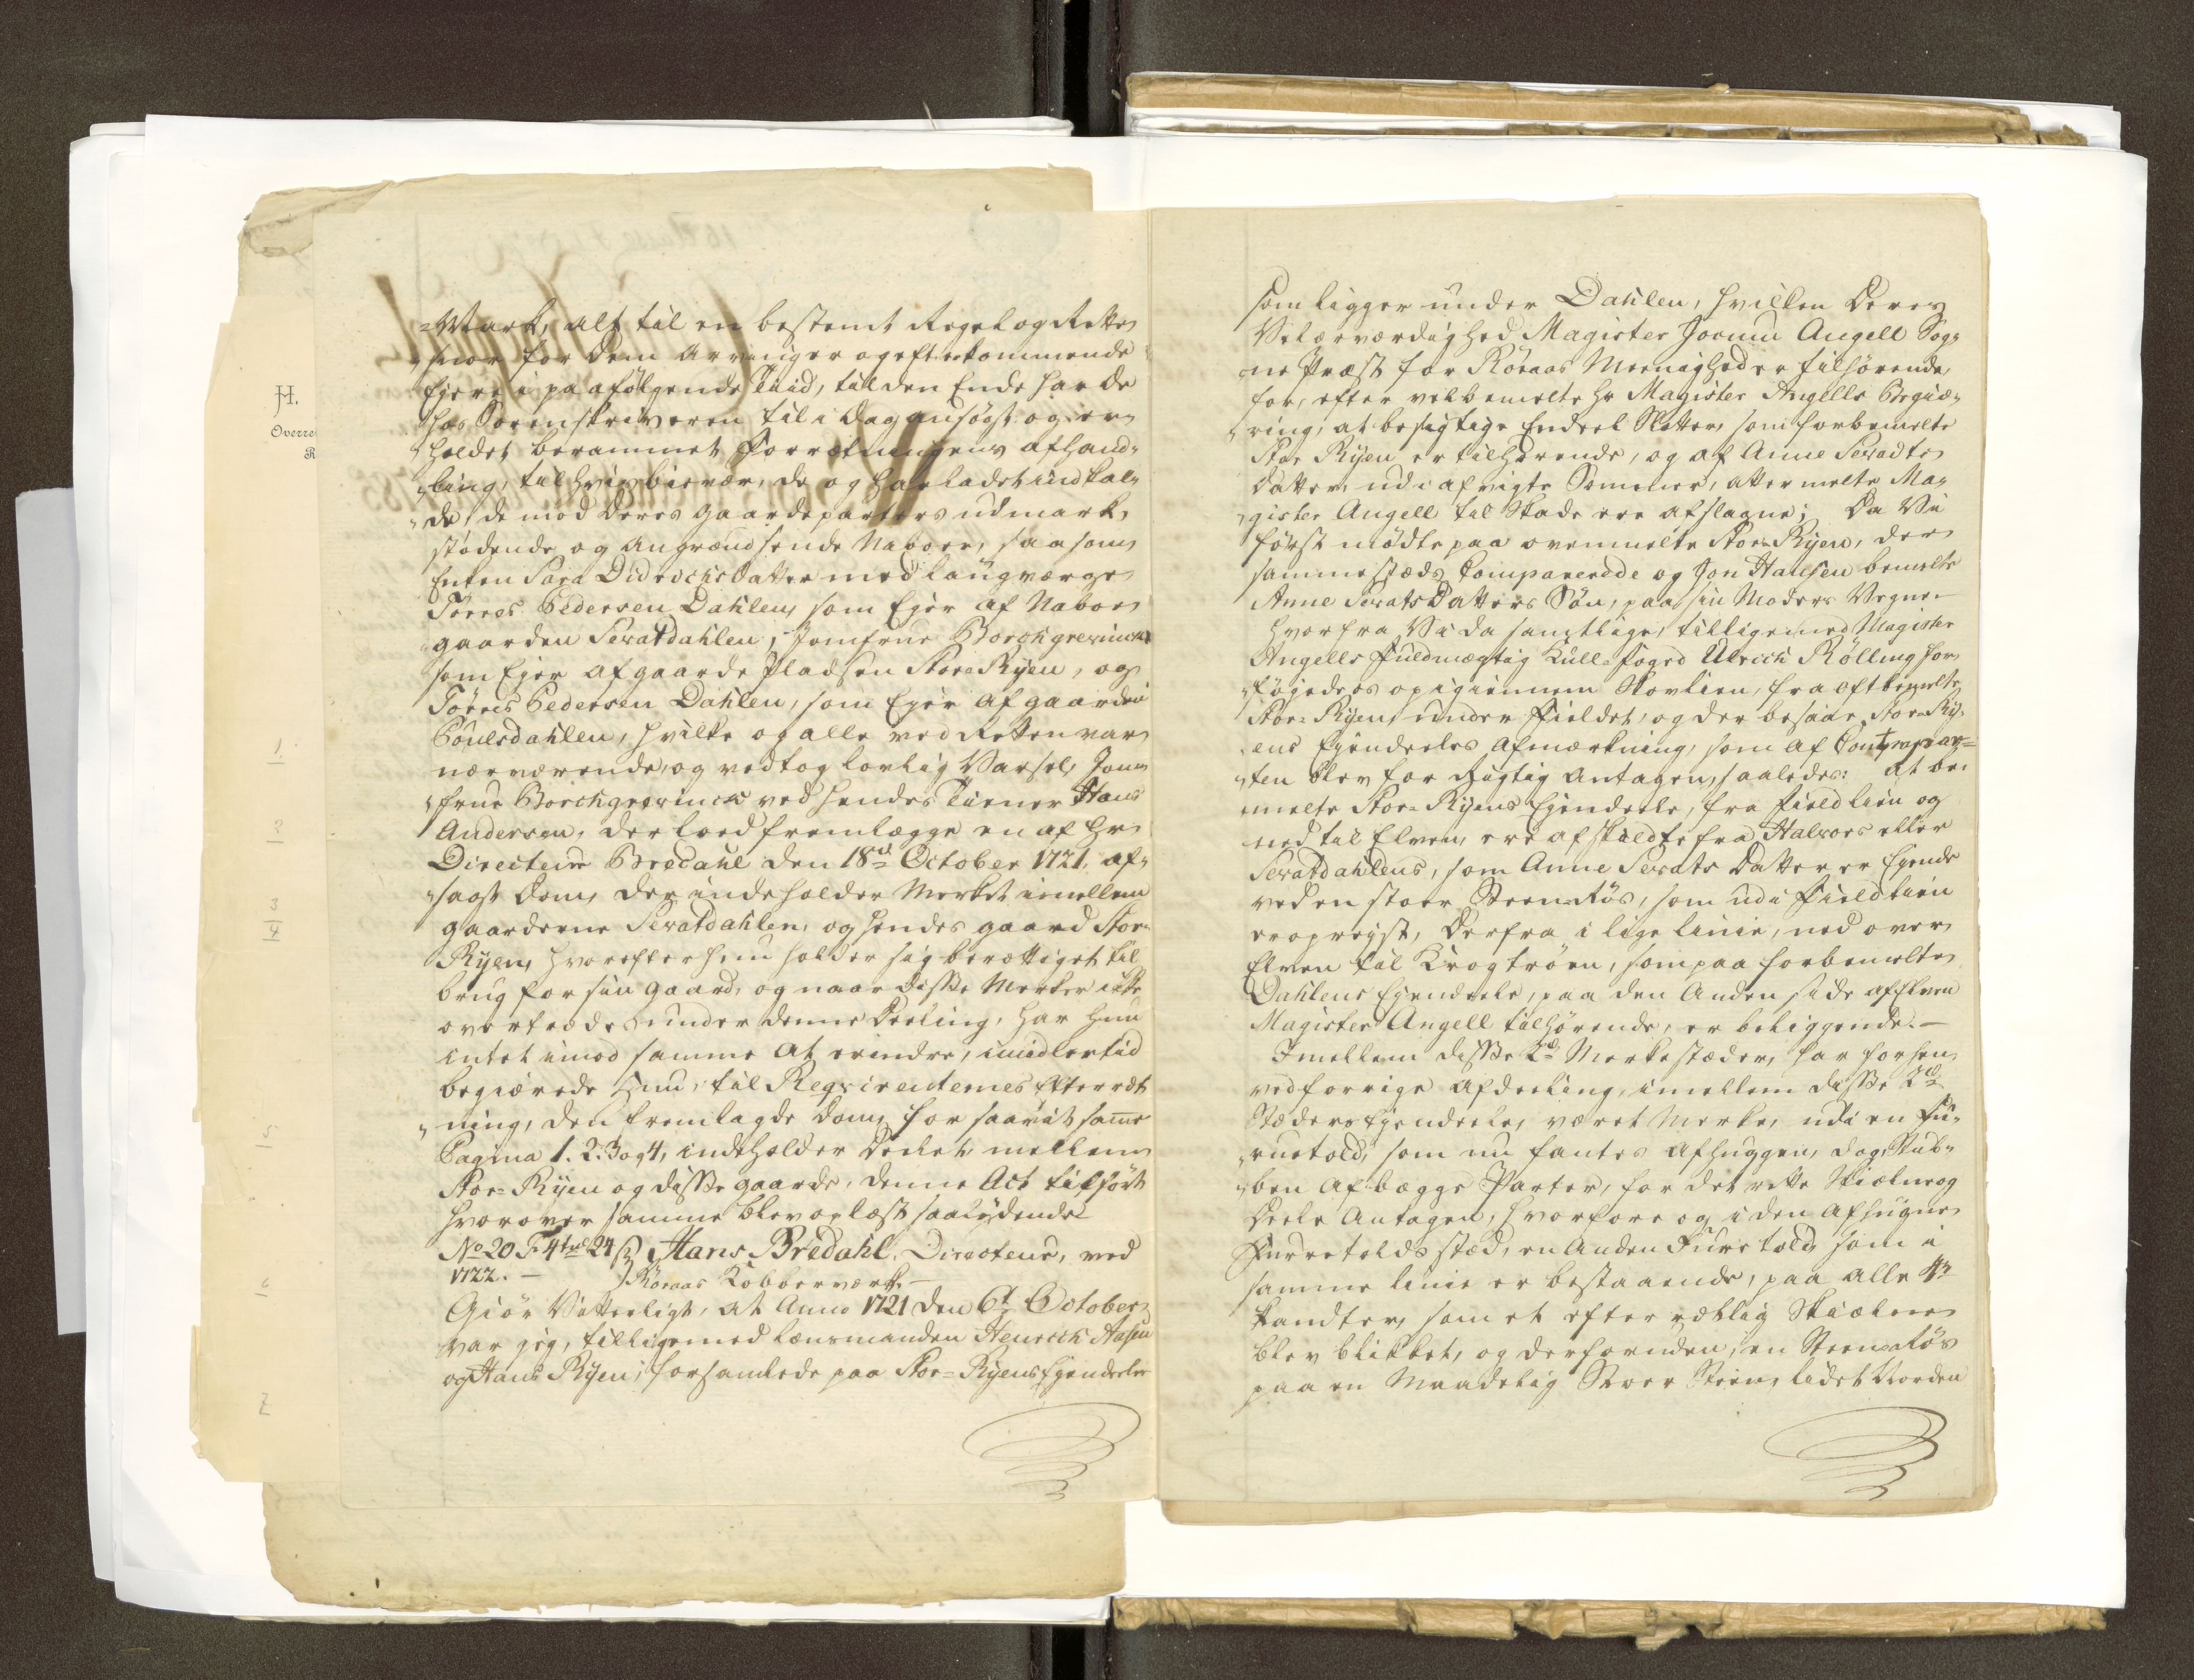 =Mark, alt til en bestemt Regel og Rette
snor for dem arvinger og efterkommende
Ejere i paafølgende Tiid, til den Ende har de
hos Sorenskriveren til i Dag ansøgt og er¬
holdet berammet Forretningens afhand¬
ling, til hvis bievær, de og har ladet indkal¬
de, de mod deres gaardeparters udmark
stødende og angrændsende Naboer, saasom
Enken Sara Didrichsdatter med laugværge
Törres Pedersen Dahlen, som Ejer af Nabo
gaarden Sevatdahlen, Jomfrue Borchgrevinck
som Ejer af gaarde Pladsen Stor=Ryen, og
Törres Pedersen Dahlen, som Ejer af gaarden
Poulsdahlen, hvilke og alle ved Retten var
nærværende, og vedtog lovlig Varsel, Jom¬
frue Borchgrevinck ved hendes Tiener Hans
Andersen, der loed fremlægge en af Hr
Directeur Bredahl den 18d October 1721. af¬
sagt Dom, der indeholder Merket imellem
gaardene Sevatdahlen, og hendes gaard Stor¬
Ryen, hvorefter hun holder sig berettiget til
brug for sin gaard, og naar disse Merker ikke
overtrædes under denne Deeling, har hun
intet imod samme at erindre, imidlertid
begiærede hun, til Reqvirenternes Efterrét
ning, den fremlagde Dom, for saavit same
Pagina 1. 2. 3 og 4, indeholder Deelet mellem
Stor=Ryen og disse gaarde, denne Act tilført
hvorover samme blev oplæst saalydende
No 20 F. 4 tul 24 ß Hans Bredahl. Directeur, ved
1722.— Röraas Kobberværk.—
Giör Vitterligt, at Anno 1721 den 6t October
var jeg, tilligemed lænsmanden Henrich
og Hans Ryen, forsamlede paa Stor=Ryens Ejendeele
som ligger under Dahlen, hvilken Deres
Velærværdighed Magister Jocum Angell Sog¬
ne Præst for Röraas Meenighed er tilhørende,
for, efter velbemelte Hr Magister Angells Begiæ¬
ring, at besigtige Endeel Sletter, som forbemelte
Stor Ryen er tilhørende, og af Anne Sevadts
Datter, udi afvigte Sommer, attermelte Ma¬
gister Angell til Skade ere afslagne; Da Vi
först mödte paa ovenmelte Stor=Ryen, der
sammestæds Comparerede og Jon Halsen bemelte
Anne Sevats Datters Sön, paa sin Moders Vegne.
hvorfra Vi da samtlige, tilligemed Magister
Angells fuldmægtig Kull=foged Ulrich Rölling for¬
föjede os op igiennem Skovlien, fra oftbemelte
Stor=Ryen, under Fieldet, og der besaae Stor=Ry¬
ens Ejendeeles Afmærkning, som af Contrapar=
ten blev for Rigtig antagen, saaledes: at be¬
melte Stor=Ryens Ejendeele, fra Fieldlien og
ned til Elven, ere afskildte fra Halvors eller
Sevatdahlens, som Anne Sevats Datter er Ejende
ved en stoer Steen=Rös, som udi Fieldlien
er opreyst, Derfra i lige linie, ned over
Elven til Krogtröen, som paa forbemelte
Dahlens Ejendeele, paa den Anden side af Elven
Magister Angell tilhørende, er beliggende.—
Imellem disse 2de Merkestæder, har forhen
ved forrige afdeeling, imellem disse 2de
Stæders Ejendeele, været Merke, udi en Fu¬
ruetold, som nu fantes afhuggen, dog Stub¬
ben af begge Parter, for det rette Skiælne og
Deele Antagen, hvorfore og i den afhugne
Furretolds stæd, en anden Furetold, som i
samme linie er bestaaende, paa alle 4re
kandter, som et efterretlig Skiælne
blev blikket, og derforuden, en Steen=Rös
paa en Maadelig Stoer Steen, lidet Norden